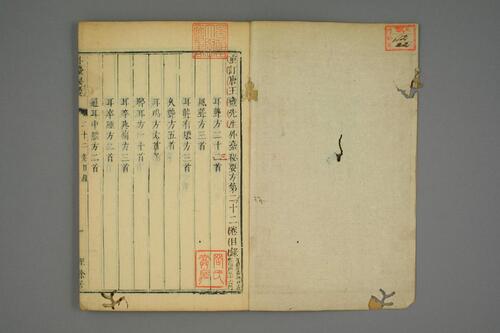 重訂唐王燾先生外臺秘要方第二十二卷目錄
耳聾方二十二首
風聾方三首
耳聾有膿方三首
久聾方五首
耳鳴方六首
聤耳方一十首
耳卒疼痛方三首
耳卒腫方二首
耳中膿方二首
二十二卷目錄